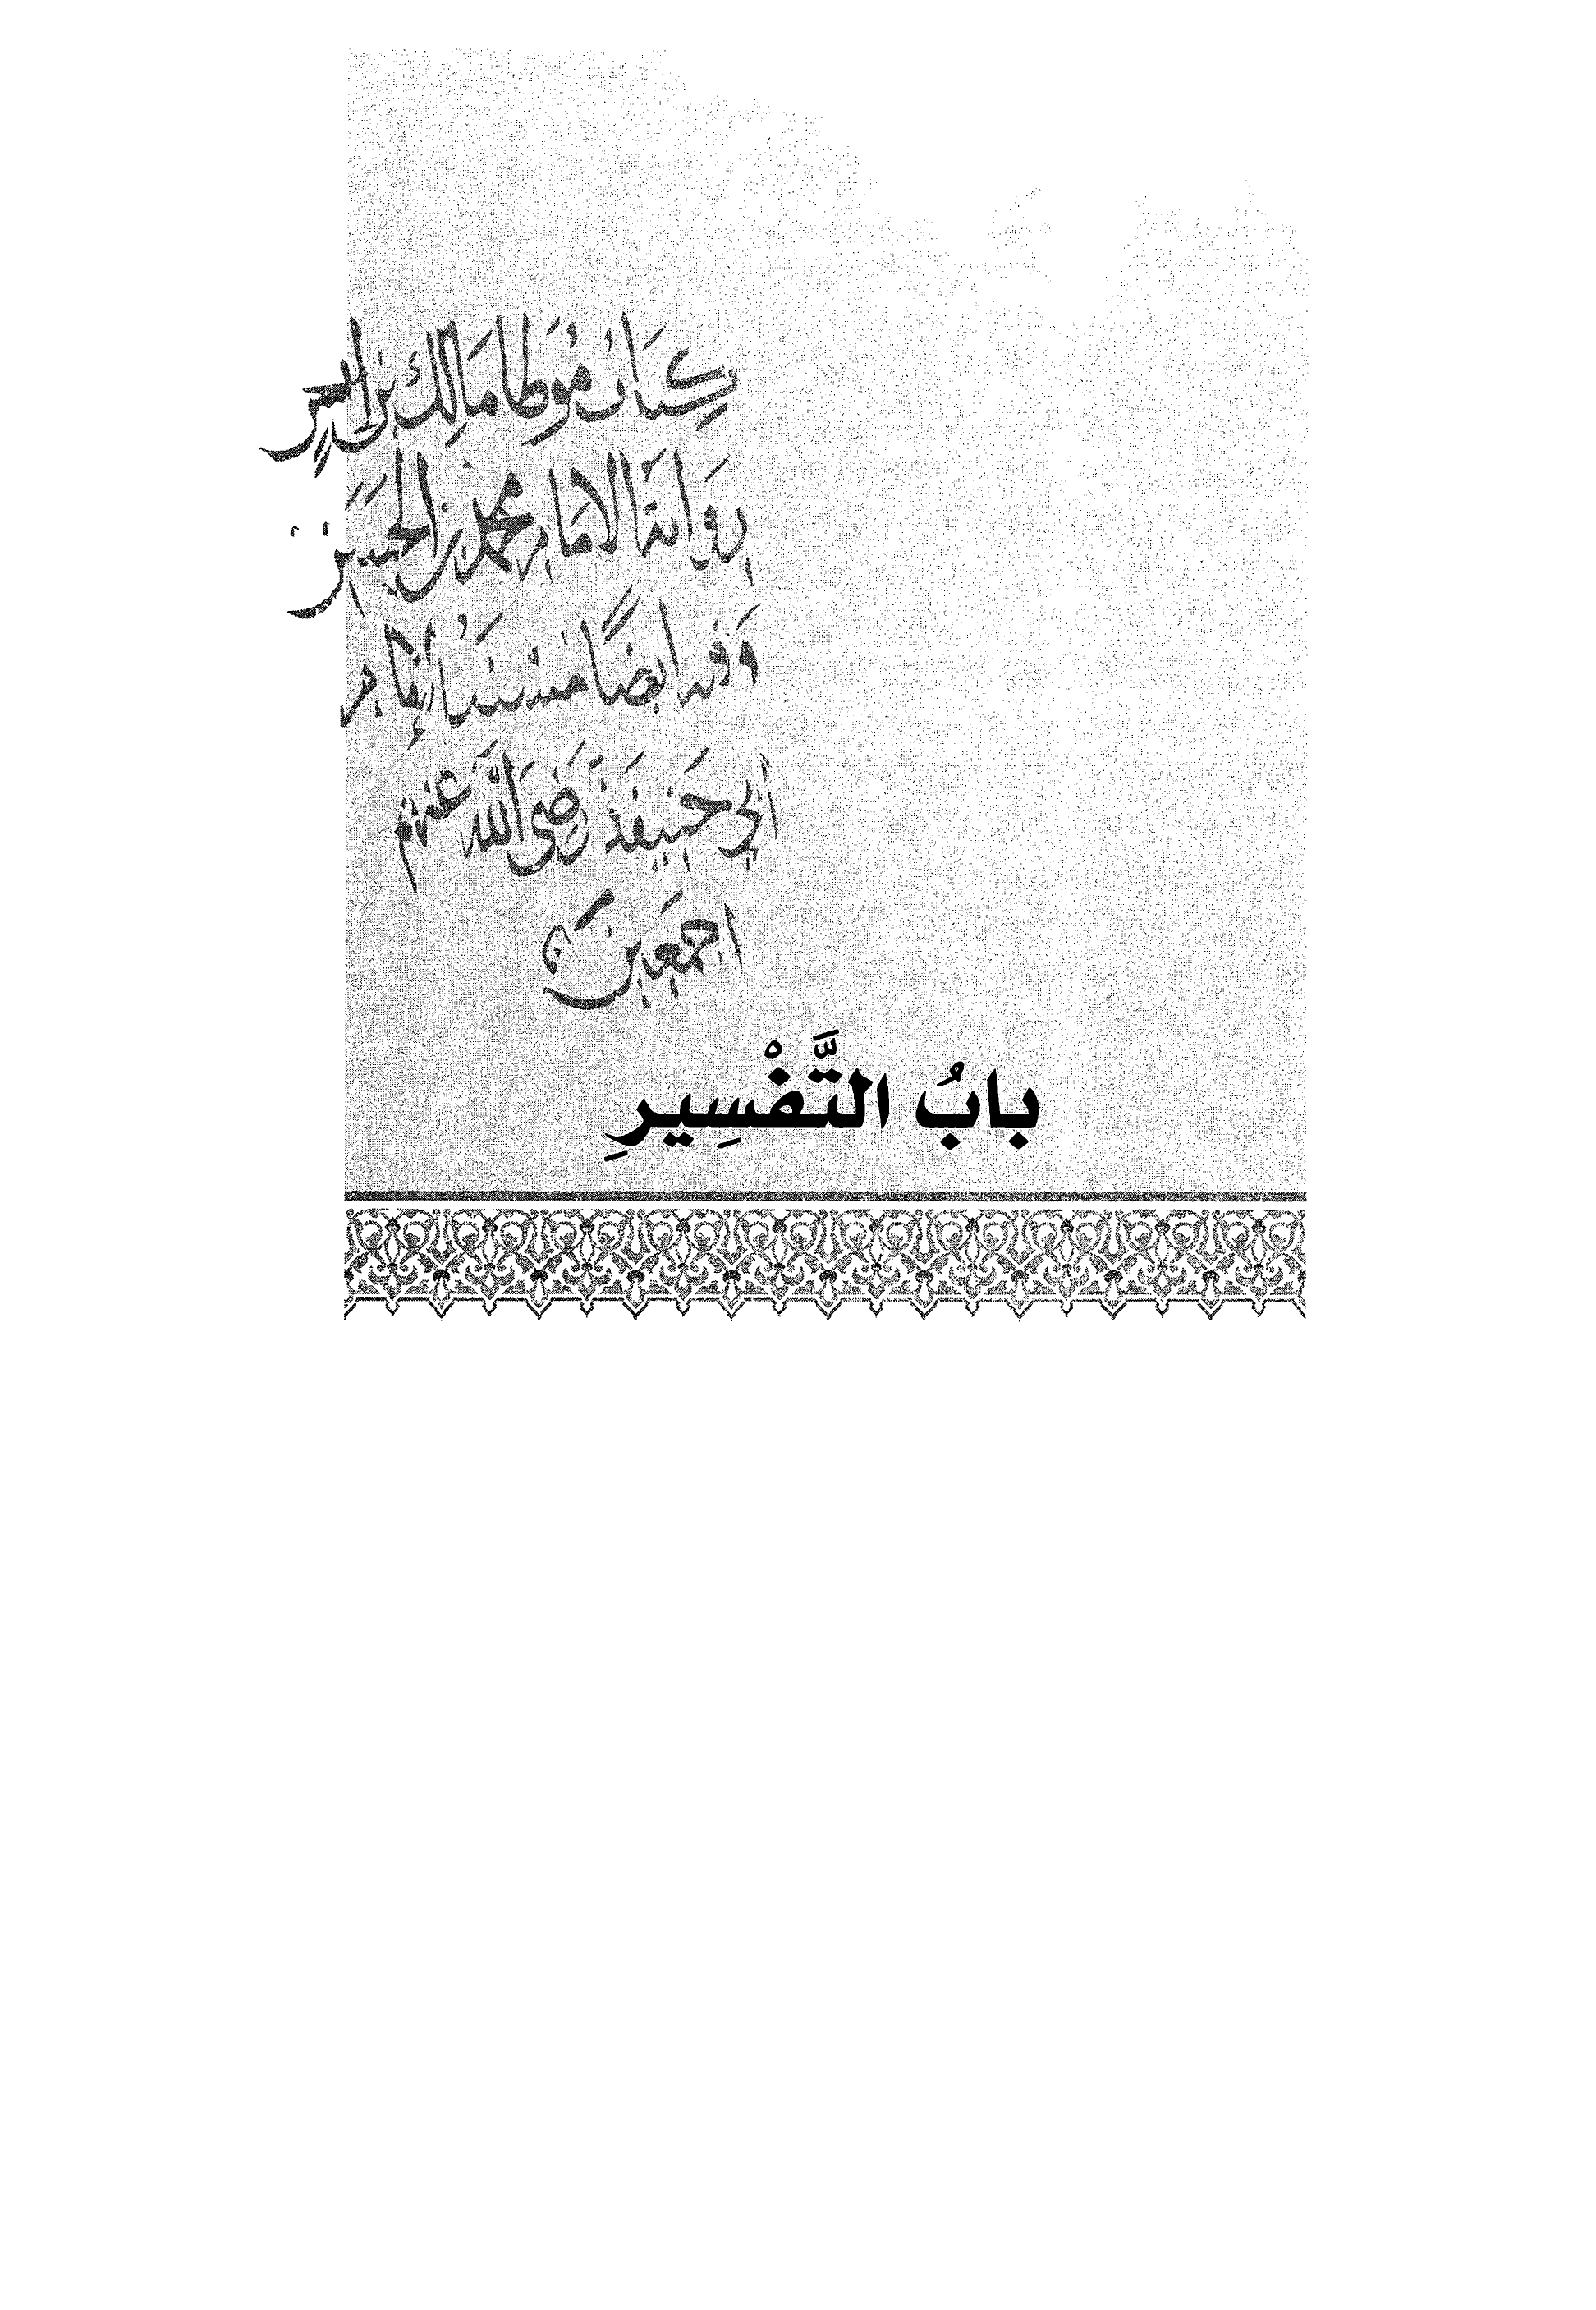 كتاب موطا مالك بن
رواية الامام محمد بن الحسن
وفيه ايضًا مسند الامام
أبي حنيفة رضي الله عنهم
اجمعين
بابُ التَّفْسِيرِ